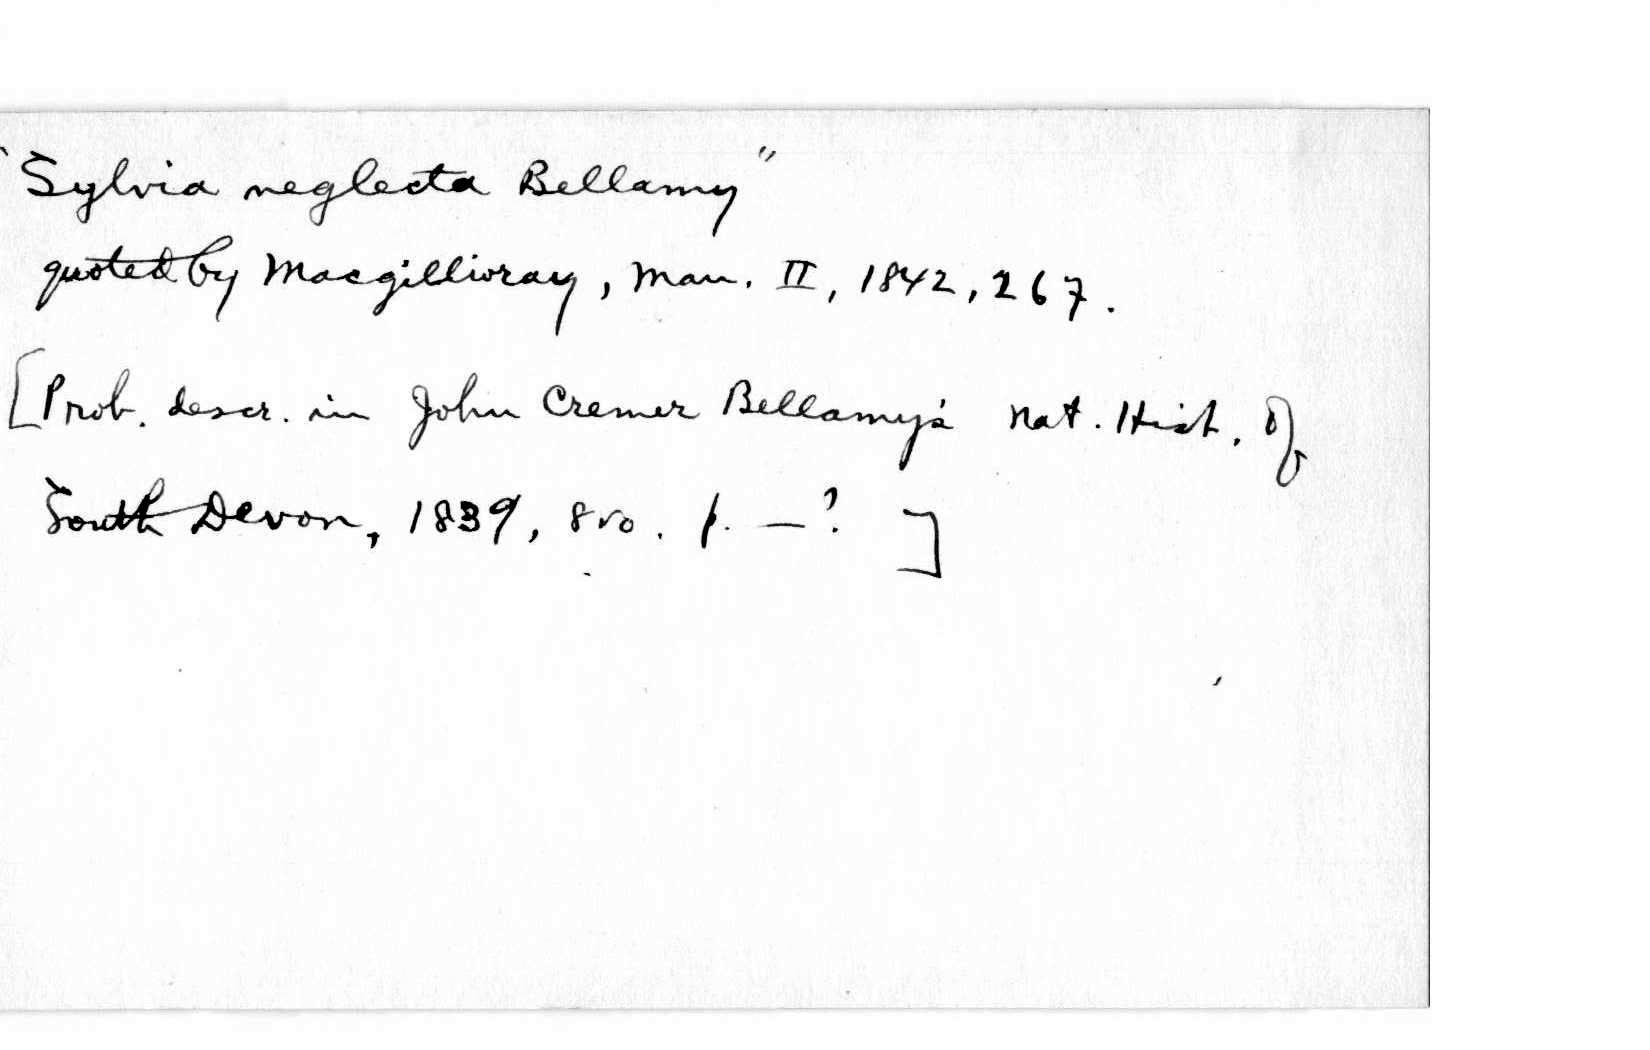 "Sylvia neglecta Bellamy"
quoted by Macgillivray, Man. II, 1842, 267.
[Prob. descr. in John Cremer Bellamy's Nat. Hist. of
South Devon, 1839, 8vo. p. —? ]